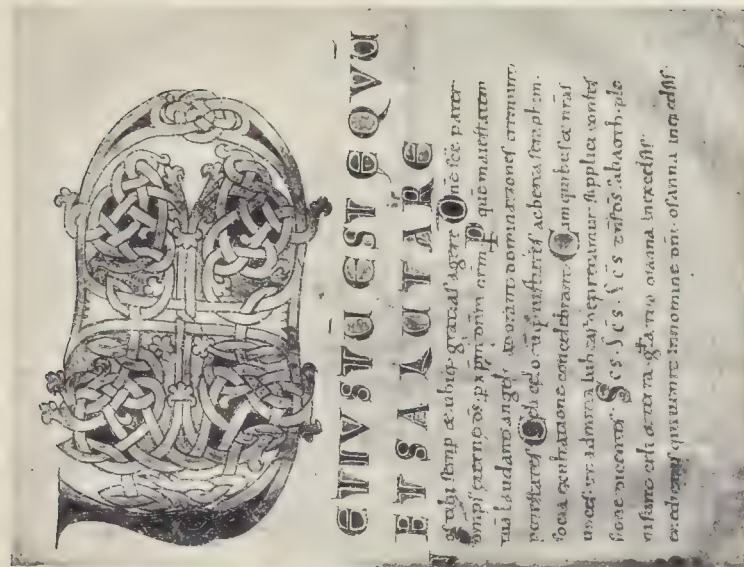 ETIVSTŪ EST EQVŪ
ET SALUTARE
nos tibi semp & ubiq; gratias agere Dnē scē pater
omps eterne ds. p xpm dnm nrm. P quē maiestatem
tuā laudant angeli. adorant dominationes tremunt
potestates Celi celorūq; uirtutes ac beata seraphim.
socia exultatione concelebrant. Cum quibus & nras
uoces ut admitti iubeas deprecamur supplici confes
sione dicentes. Scs. Scs. Scs dns ds sabaoth. ple
ni sunt celi et terra. gla tua osanna in excelsis.
qui uenit in nomine dni. osanna in excelsis.